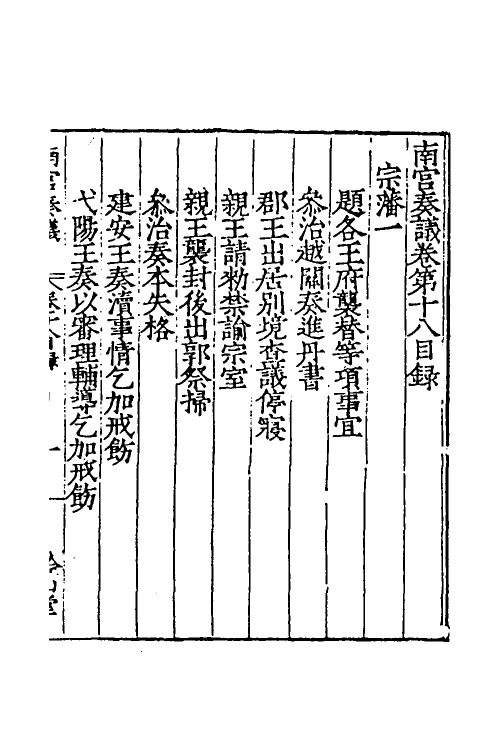 南宮奏議卷第十八目録
宗藩一
題各王府襲替等項事宜
叅治越關奏進丹書
郡王出居別境查議停寢
親王請勑禁諭宗室
親王襲封後出郭祭掃
叅治奏本失格
建安王奏瀆事情乞加戒飭
弋陽王奏以審理輔導乞加戒飭
南宮奏議 卷十八目録 一 鈐山堂